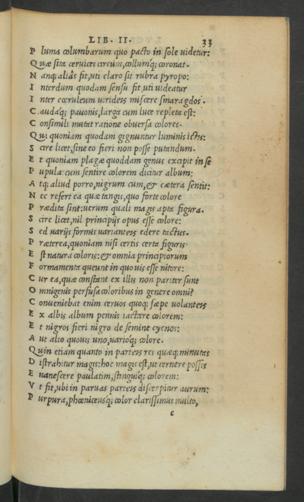 LIB. II. 33
P luma columbarum quo pacto in sole uidetur:
Q uæ sita ceruices circum, collumq; coronat.
N anq; aliâs fit, uti claro sit rubra pyropo:
I nterdum quodam sensu fit, uti uideatur
I nter cœruleum uirideis miscere smaragdos.
C audaq; pauonis, larga cum luce repleta est:
C onsimili mutat ratione obuersa colores.
Q ui quoniam quodam gignuntur luminis ictu:
S cire licet, sine eo fieri non posse putandum.
E t quoniam plagæ quoddam genus excipit in se
P upula: cum sentire colorem dicitur album;
A tq; aliud porro, nigrum cum, et cætera sentit:
N ec refert ea quæ tangis, quo forte colore
P rædita sint: uerum quali magis apta figura.
S cire licet, nil principijs opus esse colore:
S ed uarijs formis varianteis edere tactus.
P ræterea, quoniam nisi certis certa figuris
E st natura coloris: et omnia principiorum
F ormamenta queunt in quouis esse nitore:
C ur ea, quæ constant ex illis non pariter sunt
O mnigenis perfusa coloribus in genere omni?
C onueniebat enim coruos quoq; sæpe volanteis
E x albis album pennis iactare colorem:
E t nigros fieri nigro de semine cycnos:
A ut alio quouis uno, varioq; colore.
Q uin etiam quanto in parteis res quæq; minutas
D istrahitur magis: hoc magis est, ut cernere possis
E uanescere paulatim, stinguiq; colorem:
V t fit, ubi in paruas parteis discerpitur aurum:
P urpura, phœniceusq; color clarissimus multo,
c